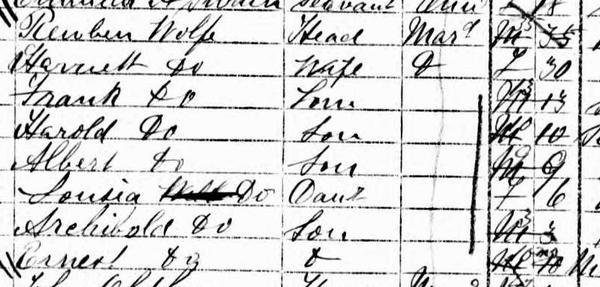 Servant
Reuben Wolfe Head Mard M 35
Harriett Do Wife D F 30
Frank Do Son M 13
Harold Do Son M 10
Albert Do Son M 9
Lousia Do Daut F 6
Archibold Do Son M 3
Ernest Do D M 10